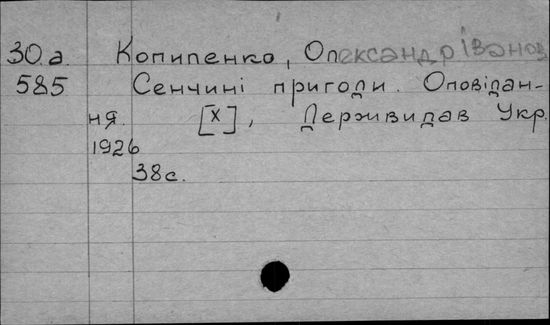 30.а. Копиленко, Олександр Іванов
585 Сенчині пригоди. Оповідан-
ня. [Х], Держвидав Укр.
1926
38с.